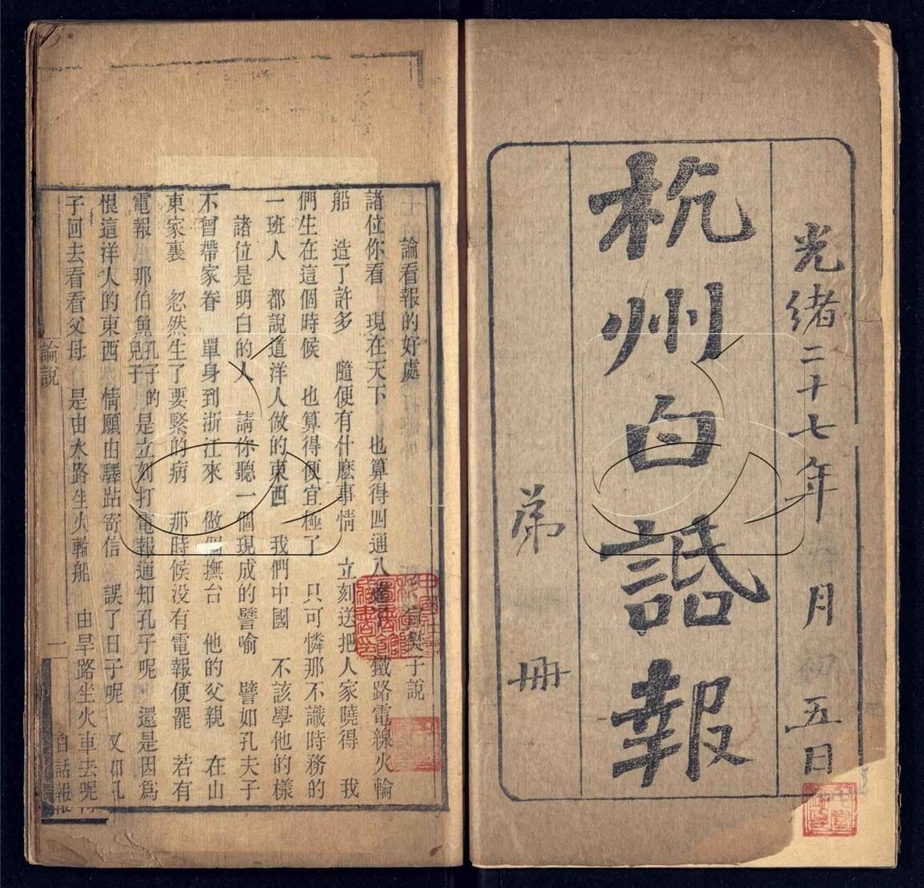 光緒二十七年 月初五日
杭州白話報
弟 冊
論看報的好處
子說
諸位你看 現在天下 也算得四通八達 鐵路電線火輪
船 造了許多 隨便有什麽事情 立刻送把人家曉得 我
們生在這個時候 也算得便宜極了 只可憐那不識時務的
一班人 都說道洋人做的東西 我們中國 不該學他的樣
諸位是明白的人 請你聽一個現成的譬喻 譬如孔夫子
不曾帶家眷 單身到浙江來 做個撫台 他的父親 在山
東家裏 忽然生了要緊的病 那時候沒有電報便罷 若有
電報 那伯魚孔子的兒子是立刻打電報通知孔子呢 還是因爲
恨這洋人的東西 情願由驛站寄信 誤了日子呢 又如孔
子回去看看父母 是由水路坐火輪船 由旱路坐火車去呢
論說
一
白話報